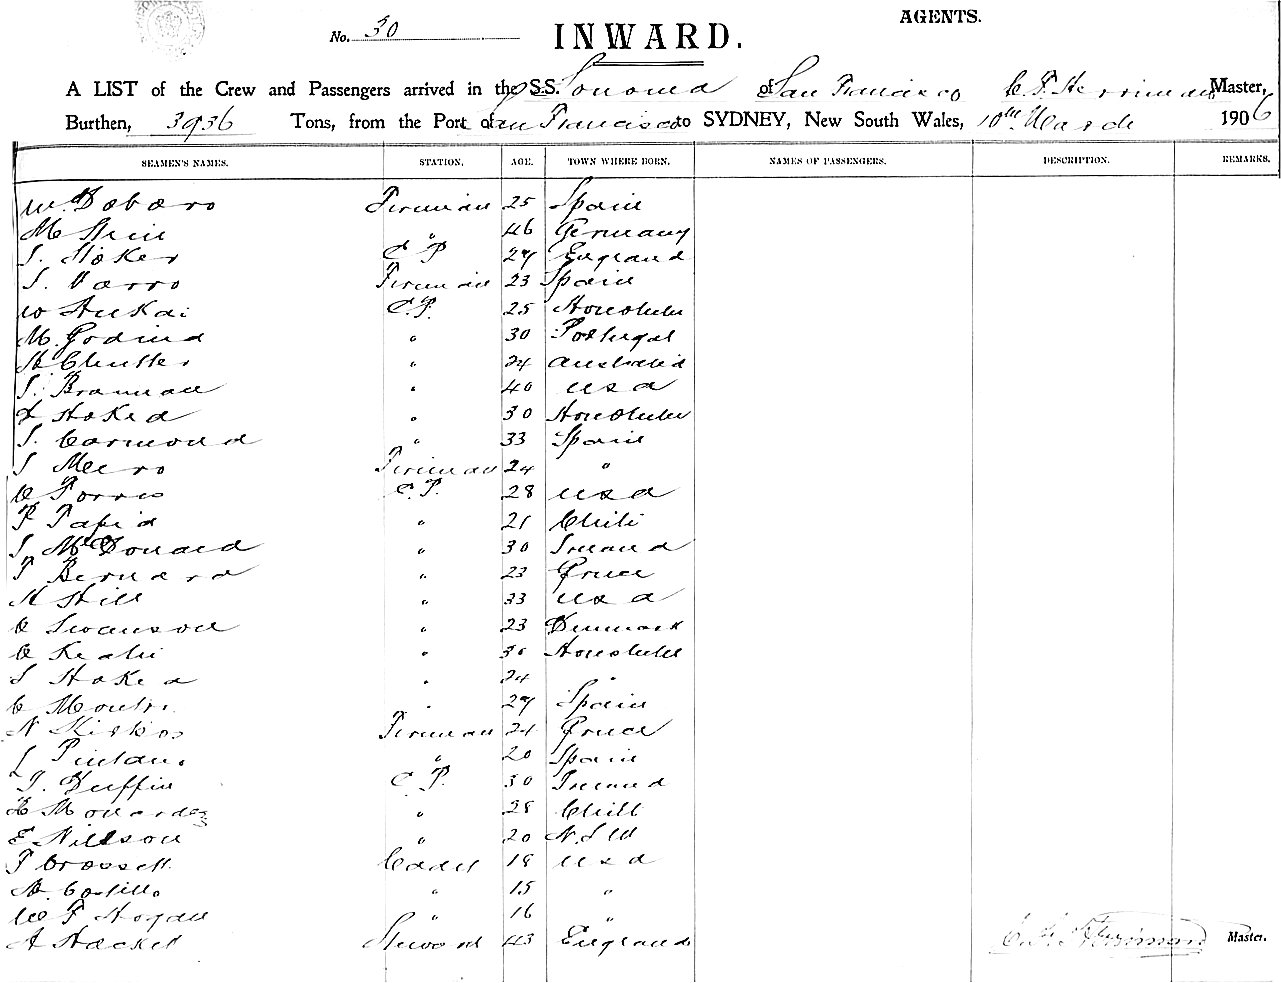 AGENTS.
No. 30
INWARD.
A LIST of the Crew and Passengers arrived in the S.S. Sonoma of San Francisco C F Herriman Master,
Burthen, 3936 Tons, from the Port of San Francisco to SYDNEY, New South Wales, 10th March 1906
SEAMEN'S NAMES. STATION. AGE. TOWN WHERE BORN. NAMES OF PASSENGERS. DESCRIPTION. REMARKS.
Fireman 25 Spain
M " 46 Germany
J. Stoker C P 27 England
J. Varro Fireman 23 Spain
C.P. 25 Honolulu
M. Godina " 30 Portugal
" 24 Australia
J. Brannan " 40 USA
Hoked " 30 Honolulu
J. Carmona " 33 Spain
J Fireman 24 "
C Torres C.P. 28 USA
P Tapia " 21 Chili
J McDonald " 30 Ireland
P Bernard " 23 Greece
Hill " 33 USA
C Swanson " 23 Denmark
C " 30 Honolulu
" 24 "
C " 27 Spain
N Fireman 24 Greece
" 20 Spain
J. Duffin C P. 30 Ireland
" 28 Chili
E Nillson " 20 N.S.W
P Crossett Cadet 18 USA
Costillo " 15 "
F Hogan " 16 "
A Hacket Steward 43 England
C. F. Herriman Master.